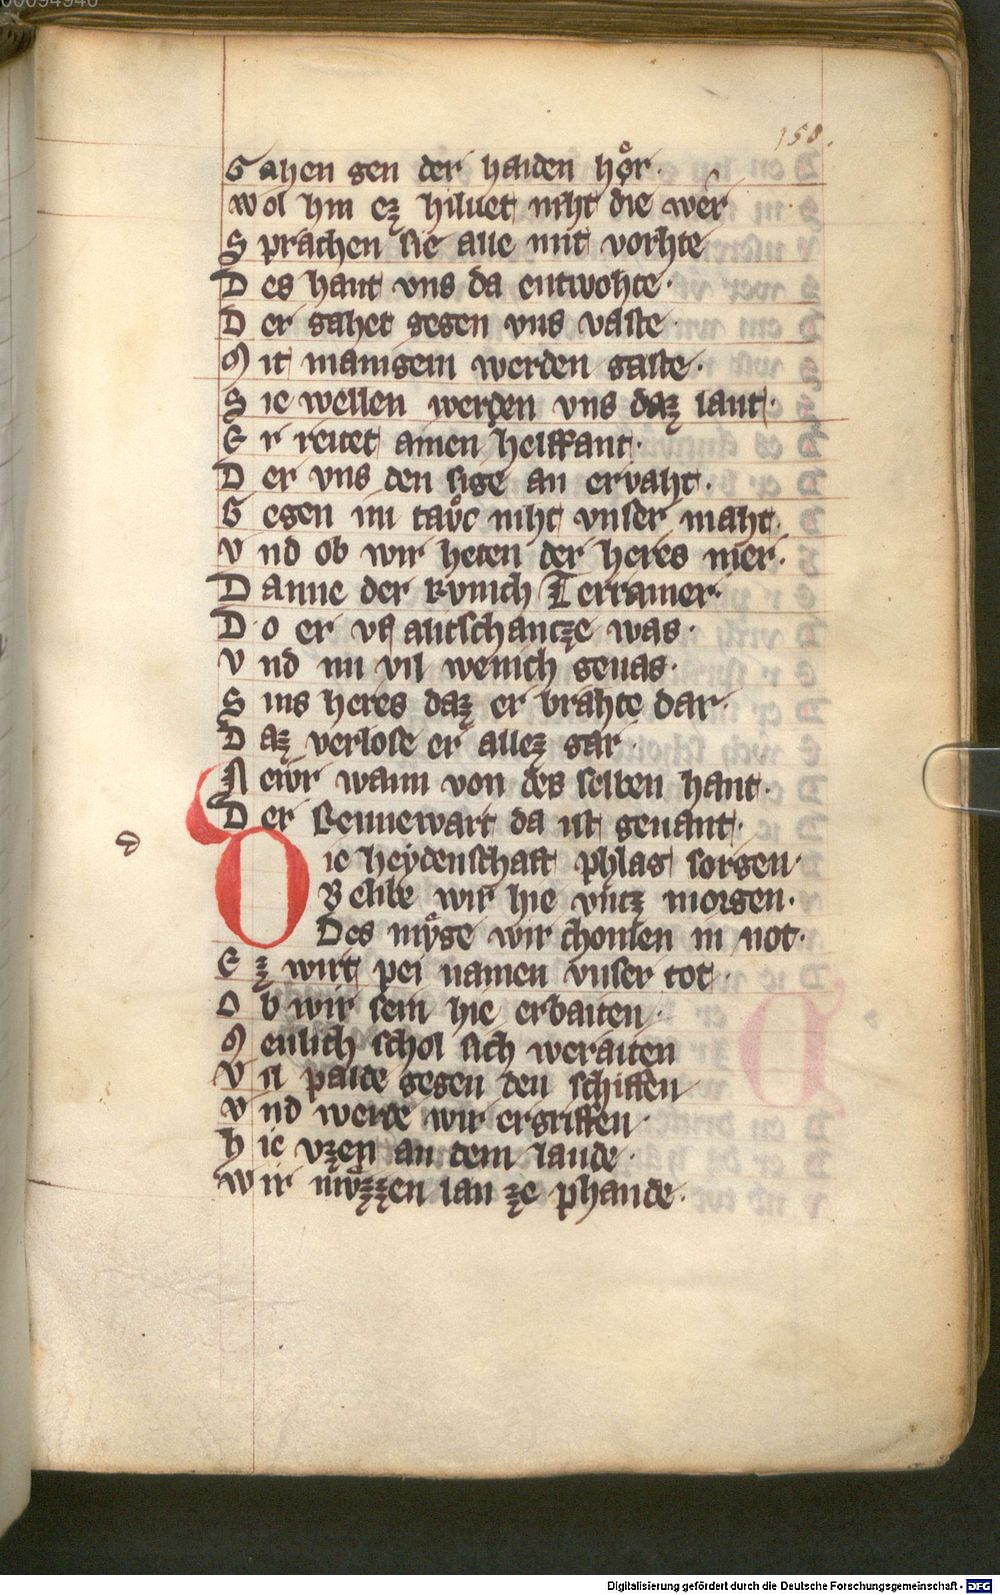 00094946
150.
G ahen gen der haiden hoͤr·
w ol hin ez hiluet niht die wer
S prachen sie alle mit vorhte
D es hant vns da entwohte·
D er gahet gegen vns vaste·
M it manigem werden gaste·
S ie wellen werden vns daz lant·
E r reitet ainen helffant·
D er vns den sige an ervaht·
G egen im tavͦc niht vnser maht·
V nd ob wir heten der heres mer·
D anne der kvnich Terramer·
D o er vf alitschantze was·
V nd im vil wenich genas·
S ins heres daz er brahte dar·
D az verlose er allez gar·
N ewr wann von des selben hant·
D er Rennewart da ist genant·
d
D ie heydenschaft phlag sorgen·
B elibe wir hie vntz morgen·
Des mvͤge wir chomen in not·
E z wirt pei namen vnser tot·
O b wir sein hie erbaiten·
M enlich schol sich weraiten
V il palde gegen den schiffen
V nd werde wir ergriffen·
h ie vzen an dem lande·
w ir mvͤzzen lan ze phande·
Digitalisierung gefördert durch die Deutsche Forschungsgemeinschaft - DFG